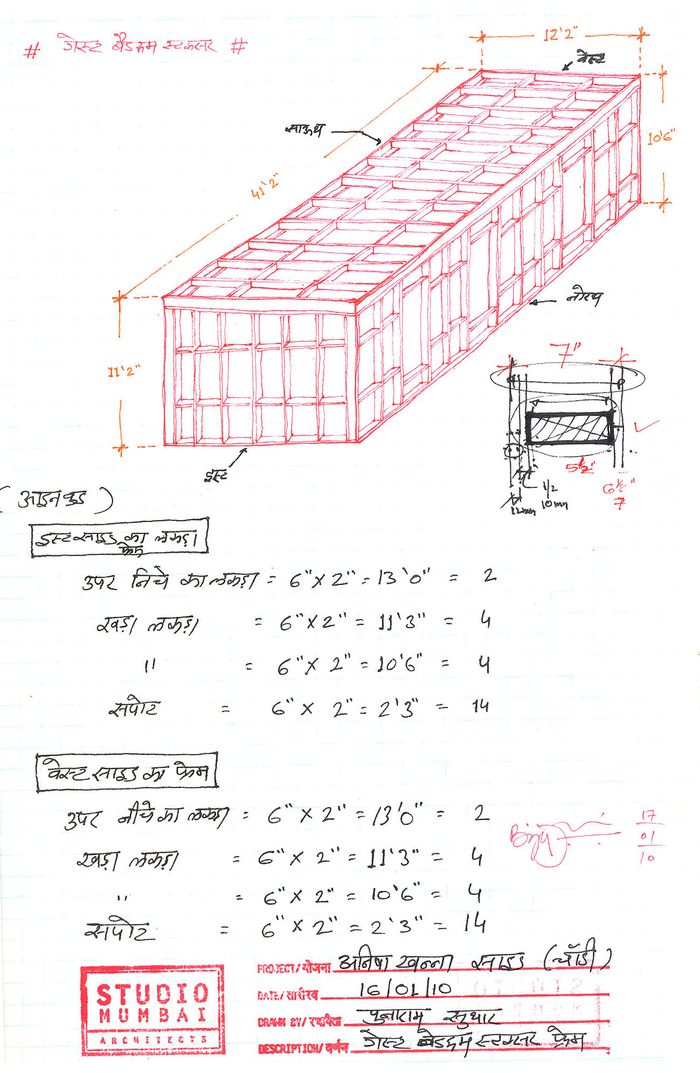 # गेस्ट बैडरूम स्टकसर #
12'2"
वेस्ट
साऊथ
10'6"
41'2"
नोरथ
11'2"
7P
इस्ट
5½"
6½"
7
1/2
12mm 10mm
इस्ट साइड का लकड़ा
फ्रेम
उपर निचे का लकड़ा = 6"X2" = 13'0" = 2
खड़ा लकड़ा = 6"X2" = 11'3" = 4
" = 6"X2" = 10'6" = 4
सपोट = 6"X2" = 2'3" = 14
वेस्ट साइड का फ्रेम
उपर नीचे का लकड़ा = 6"X2" = 13'0" = 2
खड़ा लकड़ा = 6"X2" = 11'3" = 4
" = 6"X2" = 10'6" = 4
सपोट = 6"X2" = 2'3" = 14
17
01
10
STUDIO
MUMBAI
ARCHITECTS
PROJECT/योजना अनिषा खन्ना साइड (चोंडी)
DATE/तारीख 16/01/10
DRAWN BY/रचयिता पुनाराम सुथार
DESCRIPTION/वर्णन गेस्ट बेडरूम स्टकसर फ्रेम